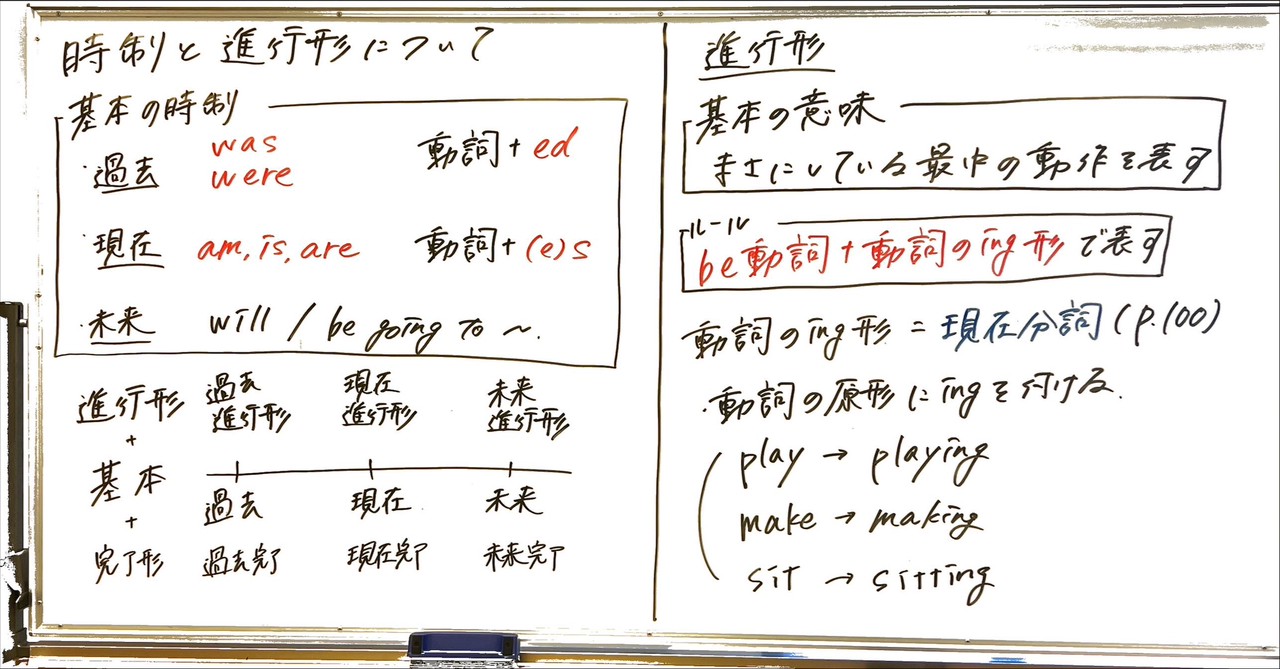 時制と進行形について
基本の時制
・過去 was 動詞+ed
were
現在 am, is, are 動詞+(e)s
・未来 will / be going to ~.
進行形 過去進行形 現在進行形 未来進行形
+
基本
過去 現在 未来
+
完了形 過去完了 現在完了 未来完了
進行形
基本の意味
まさにしている最中の動作を表す
ルール
be動詞+動詞のing形で表す
動詞のing形=現在分詞(p.100)
・動詞の原形にingを付ける.
play → playing
make → making
sit → sitting